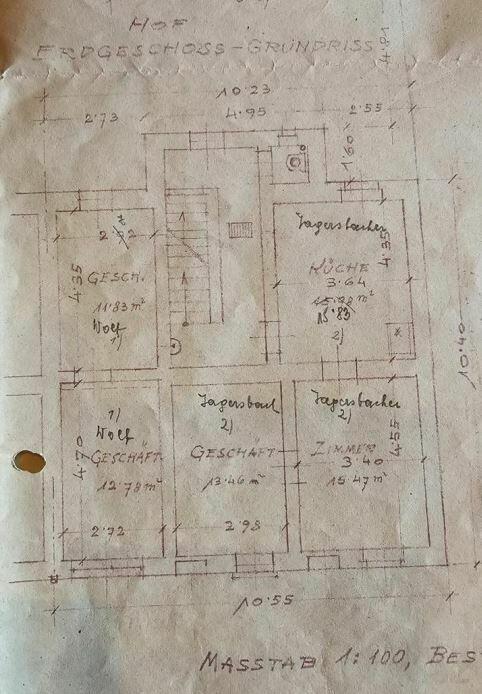 HOF
ERDGESCHOSS-GRUNDRISS
4.81
10.23
2.73 4.95 2.55
1.60
Jagersbacher
4.35
GESCH.
11.83 m²
Wolf
1)
4.35
KÜCHE
3.64
15.83
2)
10.40
1)
Wolf
GESCHÄFT
4.70
12.78 m²
2.72
Jagersbach
2)
GESCHÄFT
13.46 m²
2.98
Jagersbacher
2)
4.55
ZIMMER
3.40
15.47 m²
10.55
MASSTAB 1:100, BES